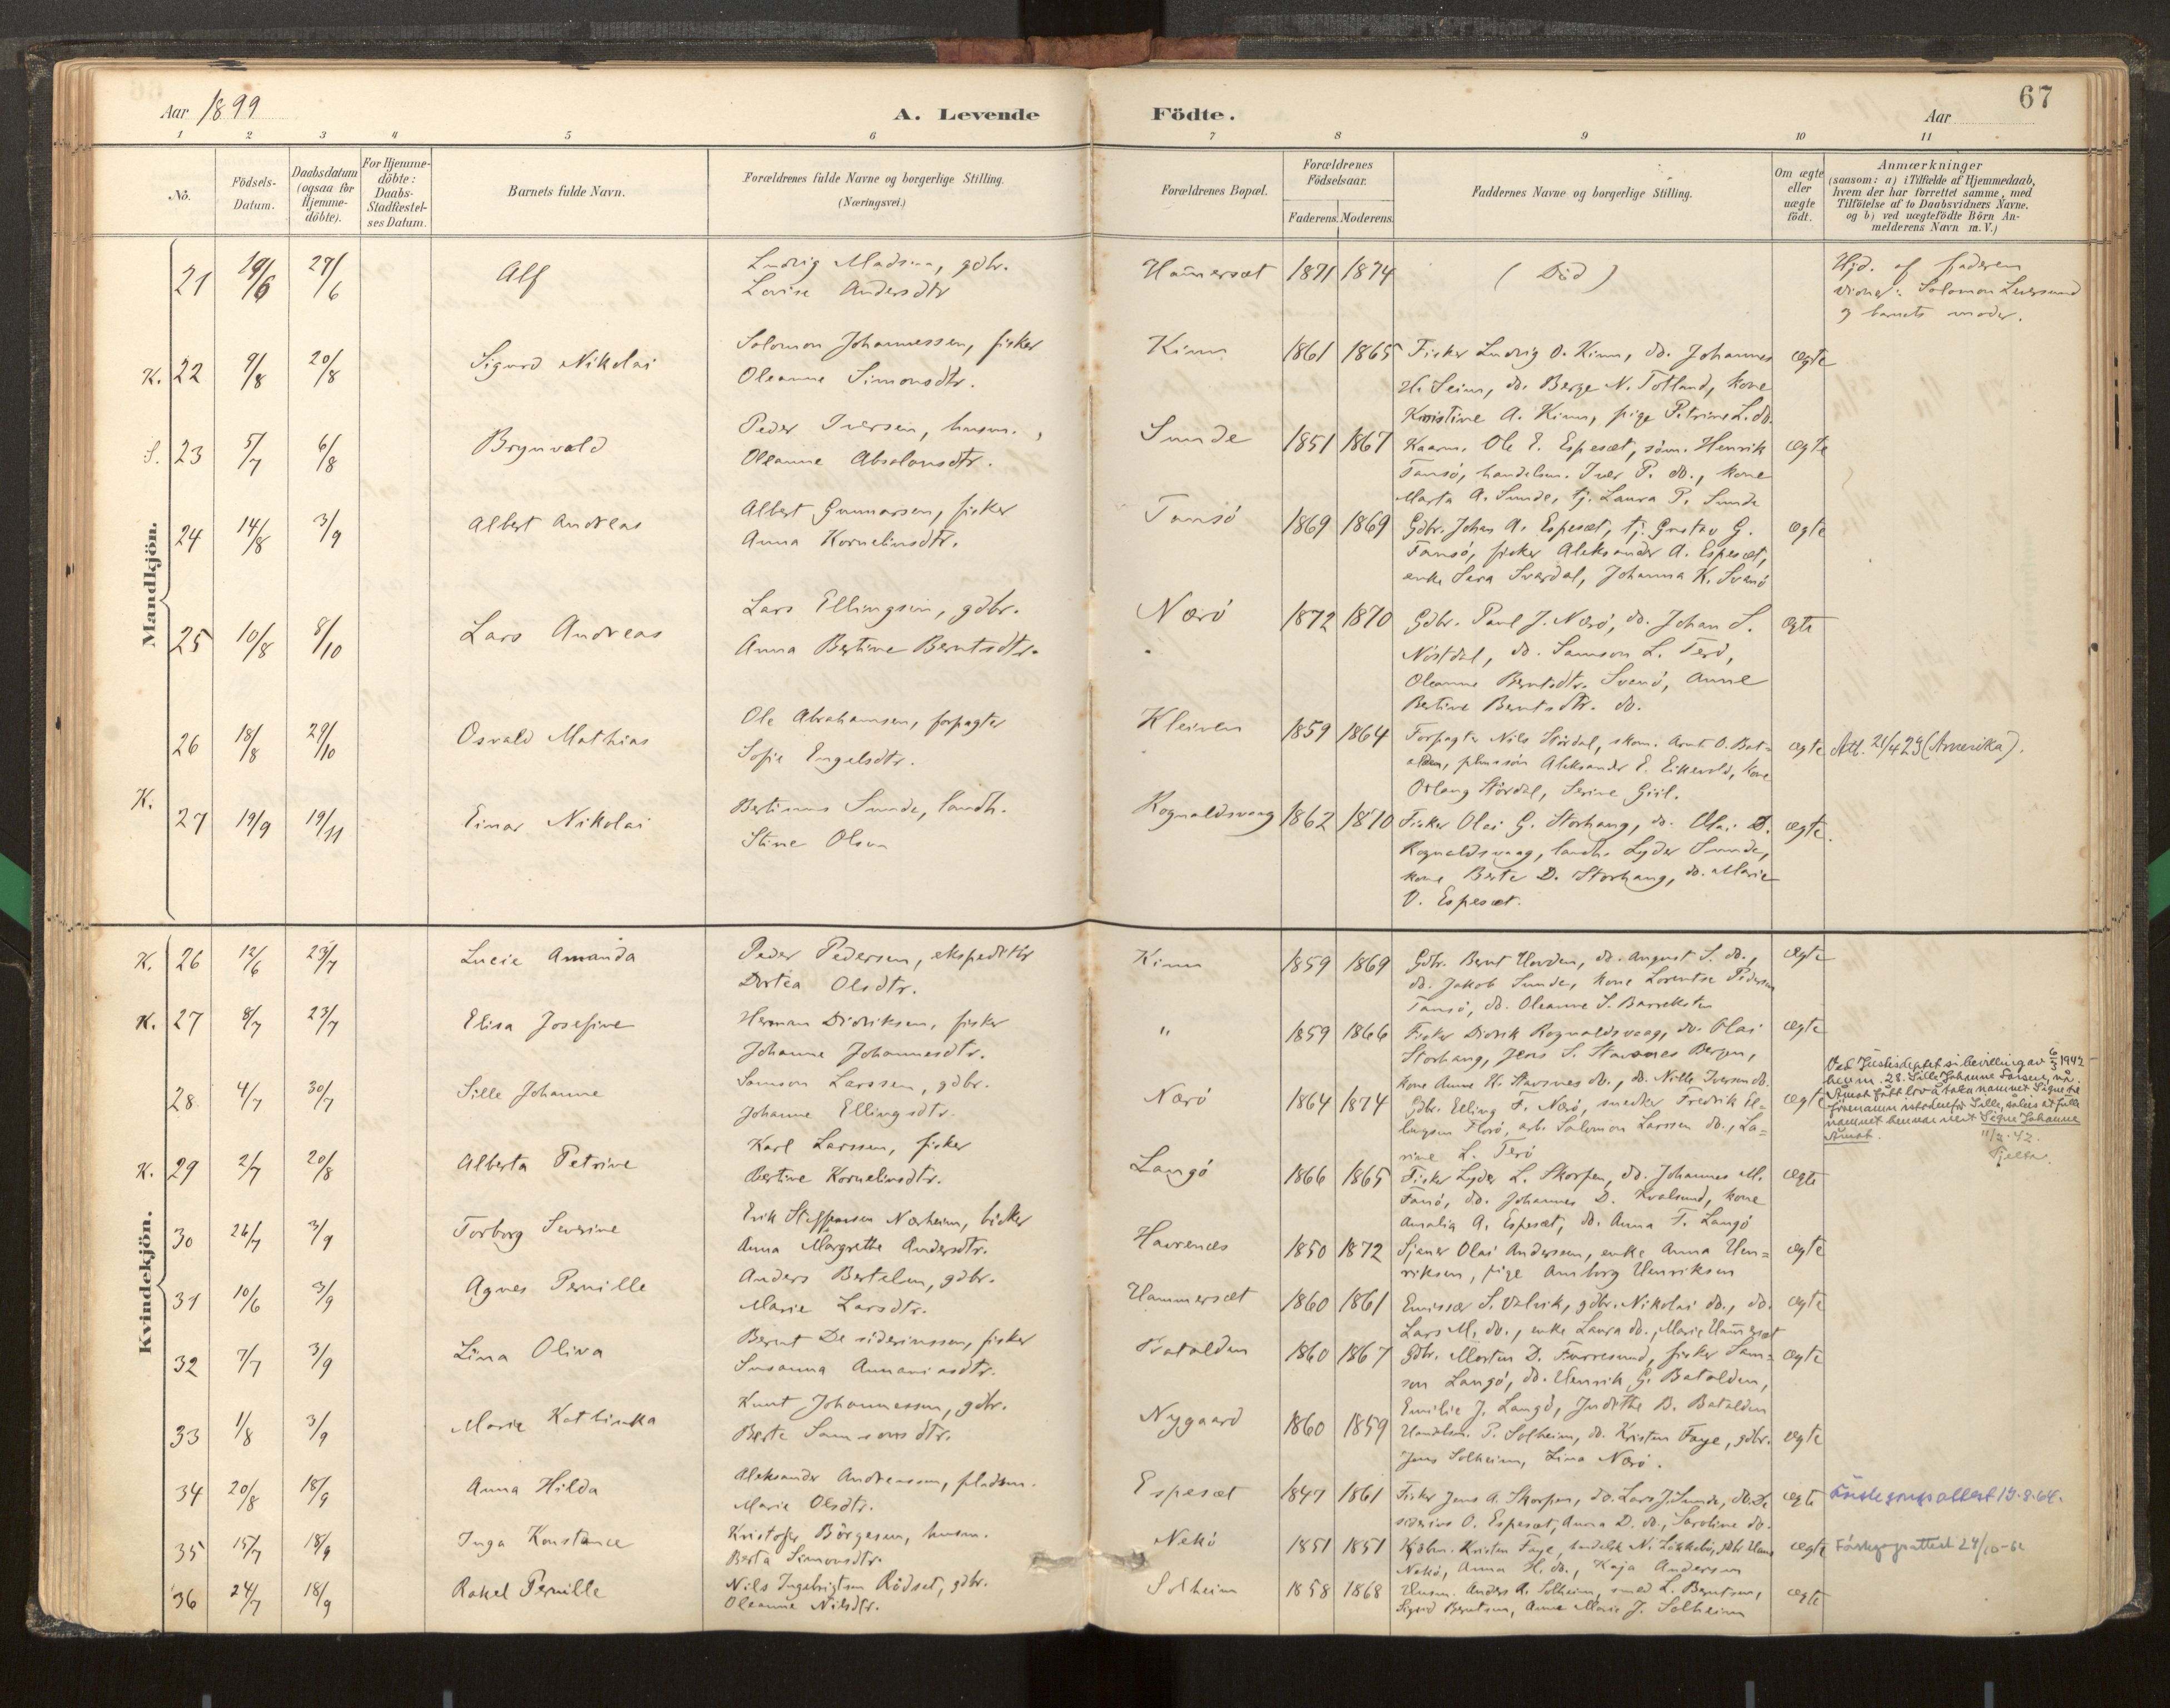 67
Aar 1899
A. Levende Födte.
Aar
1 2 3 4 5 6 7 8 9 10 11
No.
Födsels-Datum.
Daabsdatum (ogsaa for Hjemme-döbte).
For Hjemme-döbte: Daabs-Stadfæstel-ses Datum.
Barnets fulde Navn.
Forældrenes fulde Navne og borgerlige Stilling.
(Næringsvei.)
Forældrenes Bopæl.
Forældrenes Födselsaar.
Faderens. Moderens.
Faddernes Navne og borgerlige Stilling.
Om ægte eller uægte födt.
Anmærkninger
(saasom: a) i Tilfælde af Hjemmedaab, hvem der har forrettet samme, med Tilföielse af to Daabsvidners Navne, og b) ved uægtefödte Börn An-melderens Navn m. V.)
Mandkjön.
21 19/6 27/6 Alf
Ludvig Madsen, gdbr.
Lovise Andersdtr
Hammersæt 1871 1874 (Död)
Hjd. af faderen
vidner: Solomon
og barnets moder.
K. 22 9/8 20/8 Sigurd Nikolai
Solomon Johannessen, fisker
Oleanne Simonsdtr.
Kinn 1861 1865 Fisker Ludvig O. Kinn, do. Johannes ægte
H. Seim, do. Berge N. Totland, kone
Kristine A. Kinn, pige Petrine L. do.
S. 23 5/7 6/8 Brynvald
Peder Iversen, husm.,
Oleanne Absalonsdtr.
Sunde 1851 1867 Kaarm. Ole E. Espesæt, söm. Henrik ægte
Tansö, handelsm. Iver P. do., kone
Marta A. Sunde, tj. Laura P. Sunde
24 14/8 3/9 Albert Andreas
Albert Gunnarsen, fisker
Anna Kornelinsdtr.
Tansö 1869 1869 Gdbr. Johan A. Espesæt, tj. Gustav G. ægte
Tansö, fisker Aleksander A. Espesæt,
enke Sera Svardal, Johanna K. Svanö
25 10/8 8/10 Lars Andreas
Lars Ellingsen, gdbr.
Anna Bertine Berntsdtr.
Nærö 1872 1870 Gdbr. Paul J. Nærö, do. Johan S. ægte
Nöstdal, do. Samson L. Terö,
Oleanne Berntsdtr. Svanö, Anne
Bertine Berntsdtr. do.
26 18/8 29/10 Osvald Mathias
Ole Abrahamsen, forpagter
Sofie Engelsdtr.
Kleiven 1859 1864 Forpagter Nils Stördal, skom. Arnt O. Bat- ægte Att. 21/4 24 (Amerika).
alden, plmssön Aleksander E. Eikevold, kone
Stördal, Serine
K. 27 19/9 19/11 Einar Nikolai
Bertinus Sunde, landh.
Stine Olsen
Rognaldsvaag 1862 1870 Fisker Olai G. Storhaug, do. Olai D. ægte.
Rognaldsvaag, landh. Lyder Sunde,
kone Berte D. Storhaug, do. Marie
O. Espesæt.
Kvindekjön.
K. 26 12/6 23/7 Lucie Amanda
Peder Pedersen, ekspeditör
Dortea Olsdtr.
Kinn 1859 1869 Gdbr. Bernt Hovden, do. August S. do., ægte
do. Jakob Sunde, kone Lorentse Pedersen
Tansö, do. Oleanne S. Barreksten
K. 27 8/7 23/7 Elisa Josefine
Herman Didriksen, fisker
Johanne Johannesdtr.
" 1859 1866 Fisker Didrik Rognaldsvaag, do. Olai ægte
Storhaug, Jens S. Stavsnes Bergen,
kone Anne K. Stavsnes do., do. Nille Iversen do.
28 4/7 30/7 Sille Johanne
Samson Larssen, gdbr.
Johanne Ellingsdtr.
Nærö 1864 1874 Gdbr. Elling F. Nærö, snedker Fredrik El- ægte
lingsen Florö, arb. Salomon Larssen do., La-
rine L. Terö
Ved Justisdeptet si bevilling av 6/3 1942
hev nr. 28. Sille Johanne Larsen, no
Åmot fått lov å taka namnet Signe til
fornamn istadenfor Sille, såleis at fulle
namnet hennar vert Signe Johanne
Åmot. 11/3.42.
K. 29 2/7 20/8 Alberta Petrine
Karl Larssen, fisker
Bertine Kornelinsdtr.
Langö 1866 1865 Fisker Lyder L. Skorpen, do. Johannes M. ægte
Fanö, do. Johannes D. Kvalsund, kone
Amalia A. Espesæt, do. Anna T. Langö
30 26/7 3/9 Torborg Severine
Erik Steffensen Norheim, bödker
Anna Margrethe Andersdtr.
Havrenes 1850 1872 Sjauer Olai Anderssen, enke Anna Hen- ægte
riksen, pige Amborg Henriksen
31 10/6 3/9 Agnes Pernille
Anders Bertelsen, gdbr.
Marie Larsdtr.
Hammersæt 1860 1861 Emissær S. Valvik, gdbr. Nikolai do., do. ægte
Lars M. do., enke Laura do., Marie Hammersæt
32 7/7 3/9 Lina Oliva
Bernt Desideriussen, fisker
Susanna Annaniasdtr.
Batalden 1860 1867 Gdbr. Morten D. Færresund, fisker Sam- ægte
son Langö, do. Henrik G. Batalden,
Emilie J. Langö, Judithe B. Batalden
33 1/8 3/9 Marie Kathinka
Knut Johannessen, gdbr.
Berte Samsonsdtr.
Nygaard 1860 1859 Handelsm. P. Solheim, do. Kristen Faye, gdbr. ægte
Jens Solheim, Lina Nærö.
34 20/8 18/9 Anna Hilda
Aleksander Andreassen, pladsm.
Marie Olsdtr.
Espesæt 1847 1861 Fisker Jens A. Skorpen, do. Lars J. Sunde, do. De- ægte
siderius O. Espesæt, Anna D. do., Saroline do.
35 15/7 18/9 Inga Konstance
Kristofer Börgesen, husm.
Berta Simonsdtr.
Nekö 1851 1857 Kjöbm. Kristen Faye, ægte
Nekö, Anna H. do., Kaja Andersen
36 24/7 18/9 Rakel Pernille
Nils Ingebrigtsen Rödset, gdbr.
Oleanne Nilsdtr.
Solheim 1858 1868 Husm. Anders R. Solheim, smed L. Berntsen, ægte
Sigurd Berntsen, Anne Marie J. Solheim